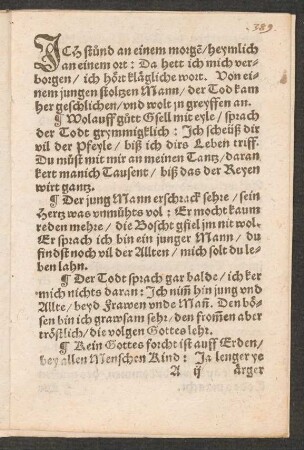 389
ICH stůnd an einem morgẽ/heymlich
an einem ort: Da hett ich mich ver-
borgen/ich hört klägliche wort. Von ei-
nem jungen stoltzen Mann/der Tod kam
her geschlichen/vnd wolt jn greyffen an.
¶ Wolauff gůtt Gsell mit eyle/sprach
der Todt grymmigklich: Ich scheüß dir
vil der Pfeyle/biß ich dirs Leben triff.
Du můst mit mir an meinen Tantz/daran
kert manich Tausent/biß das der Reyen
wirt gantz.
¶ Der jung Mann erschrack sehre/sein
Hertz was vnmůhts vol: Er mocht kaum
reden mehre/die Boscht gfiel jm nit wol.
Er sprach ich bin ein junger Mann/du
findst noch vil der Allten/mich solt du le-
ben lahn.
¶ Der Todt sprach gar balde/ich ker
mich nichts daran: Ich nim̃ hin jung vnd
Allte/beyd Frawen vnde Mañ. Den bö-
sen bin ich grawsam sehr/den from̃en aber
tröstlich/die volgen Gottes lehr.
¶ Kein Gottes forcht ist auff Erden/
bey allen Menschen Kind: Ja lenger ye
A ij ärger